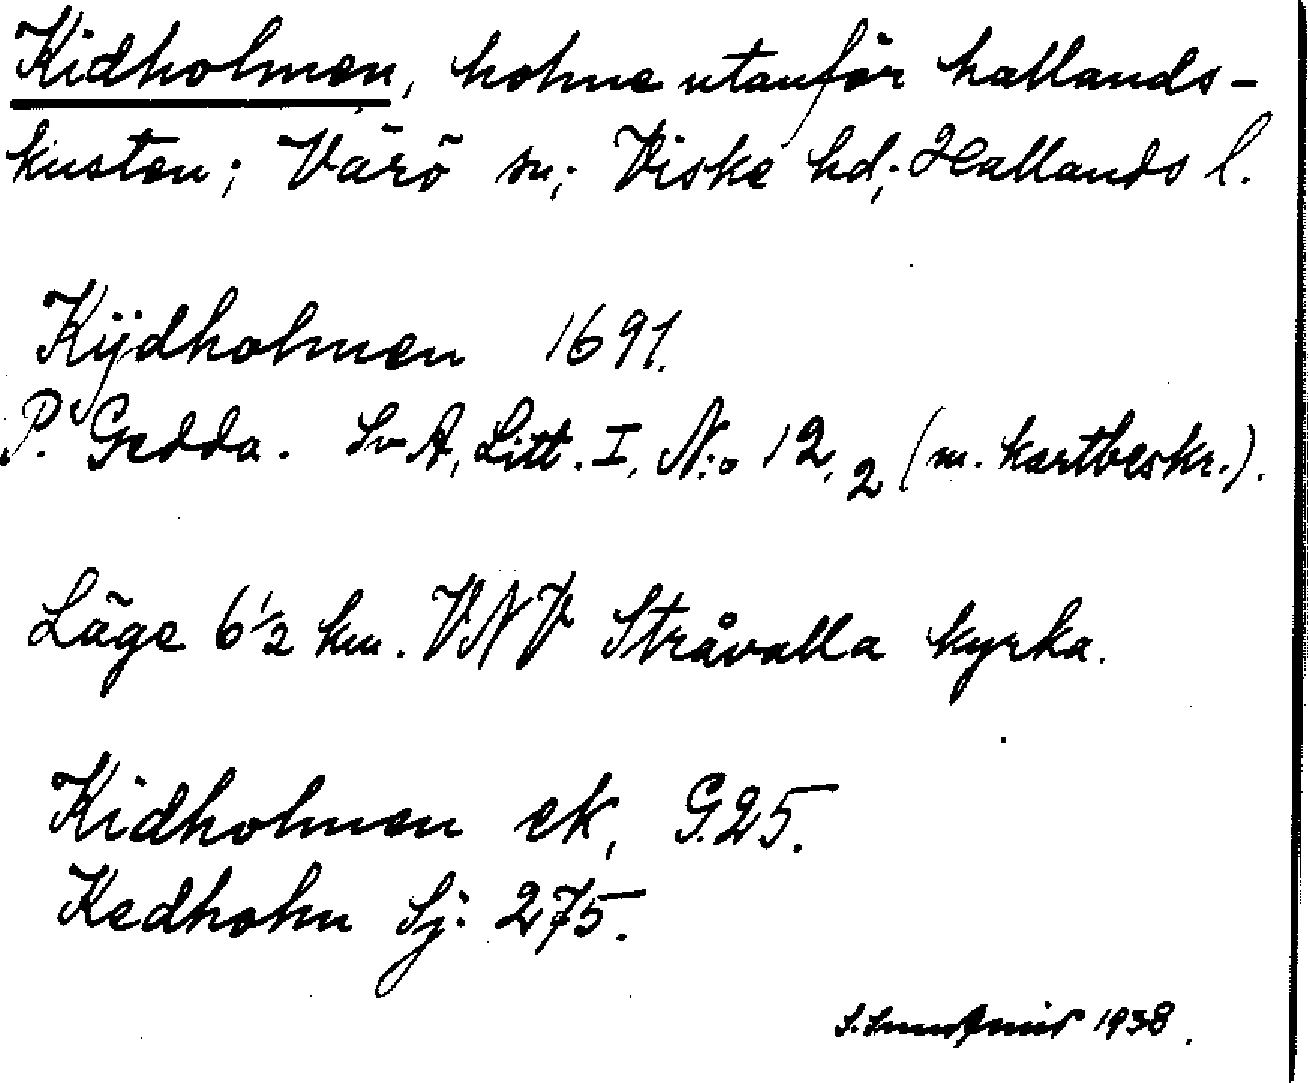 Kidholmen, holme utanför hallands-
kusten; Värö sn; Viske hd; Hallands l.
Kÿdholmen 1691.
P. Gedda. Sv A, Litt. I, N:o 12, 2 (m. kartbeskr.).
Läge 6 1/2 km. VNV Stråvalla kyrka.
Kidholmen ek, G. 25.
Kedholm Sj: 275.
1938.